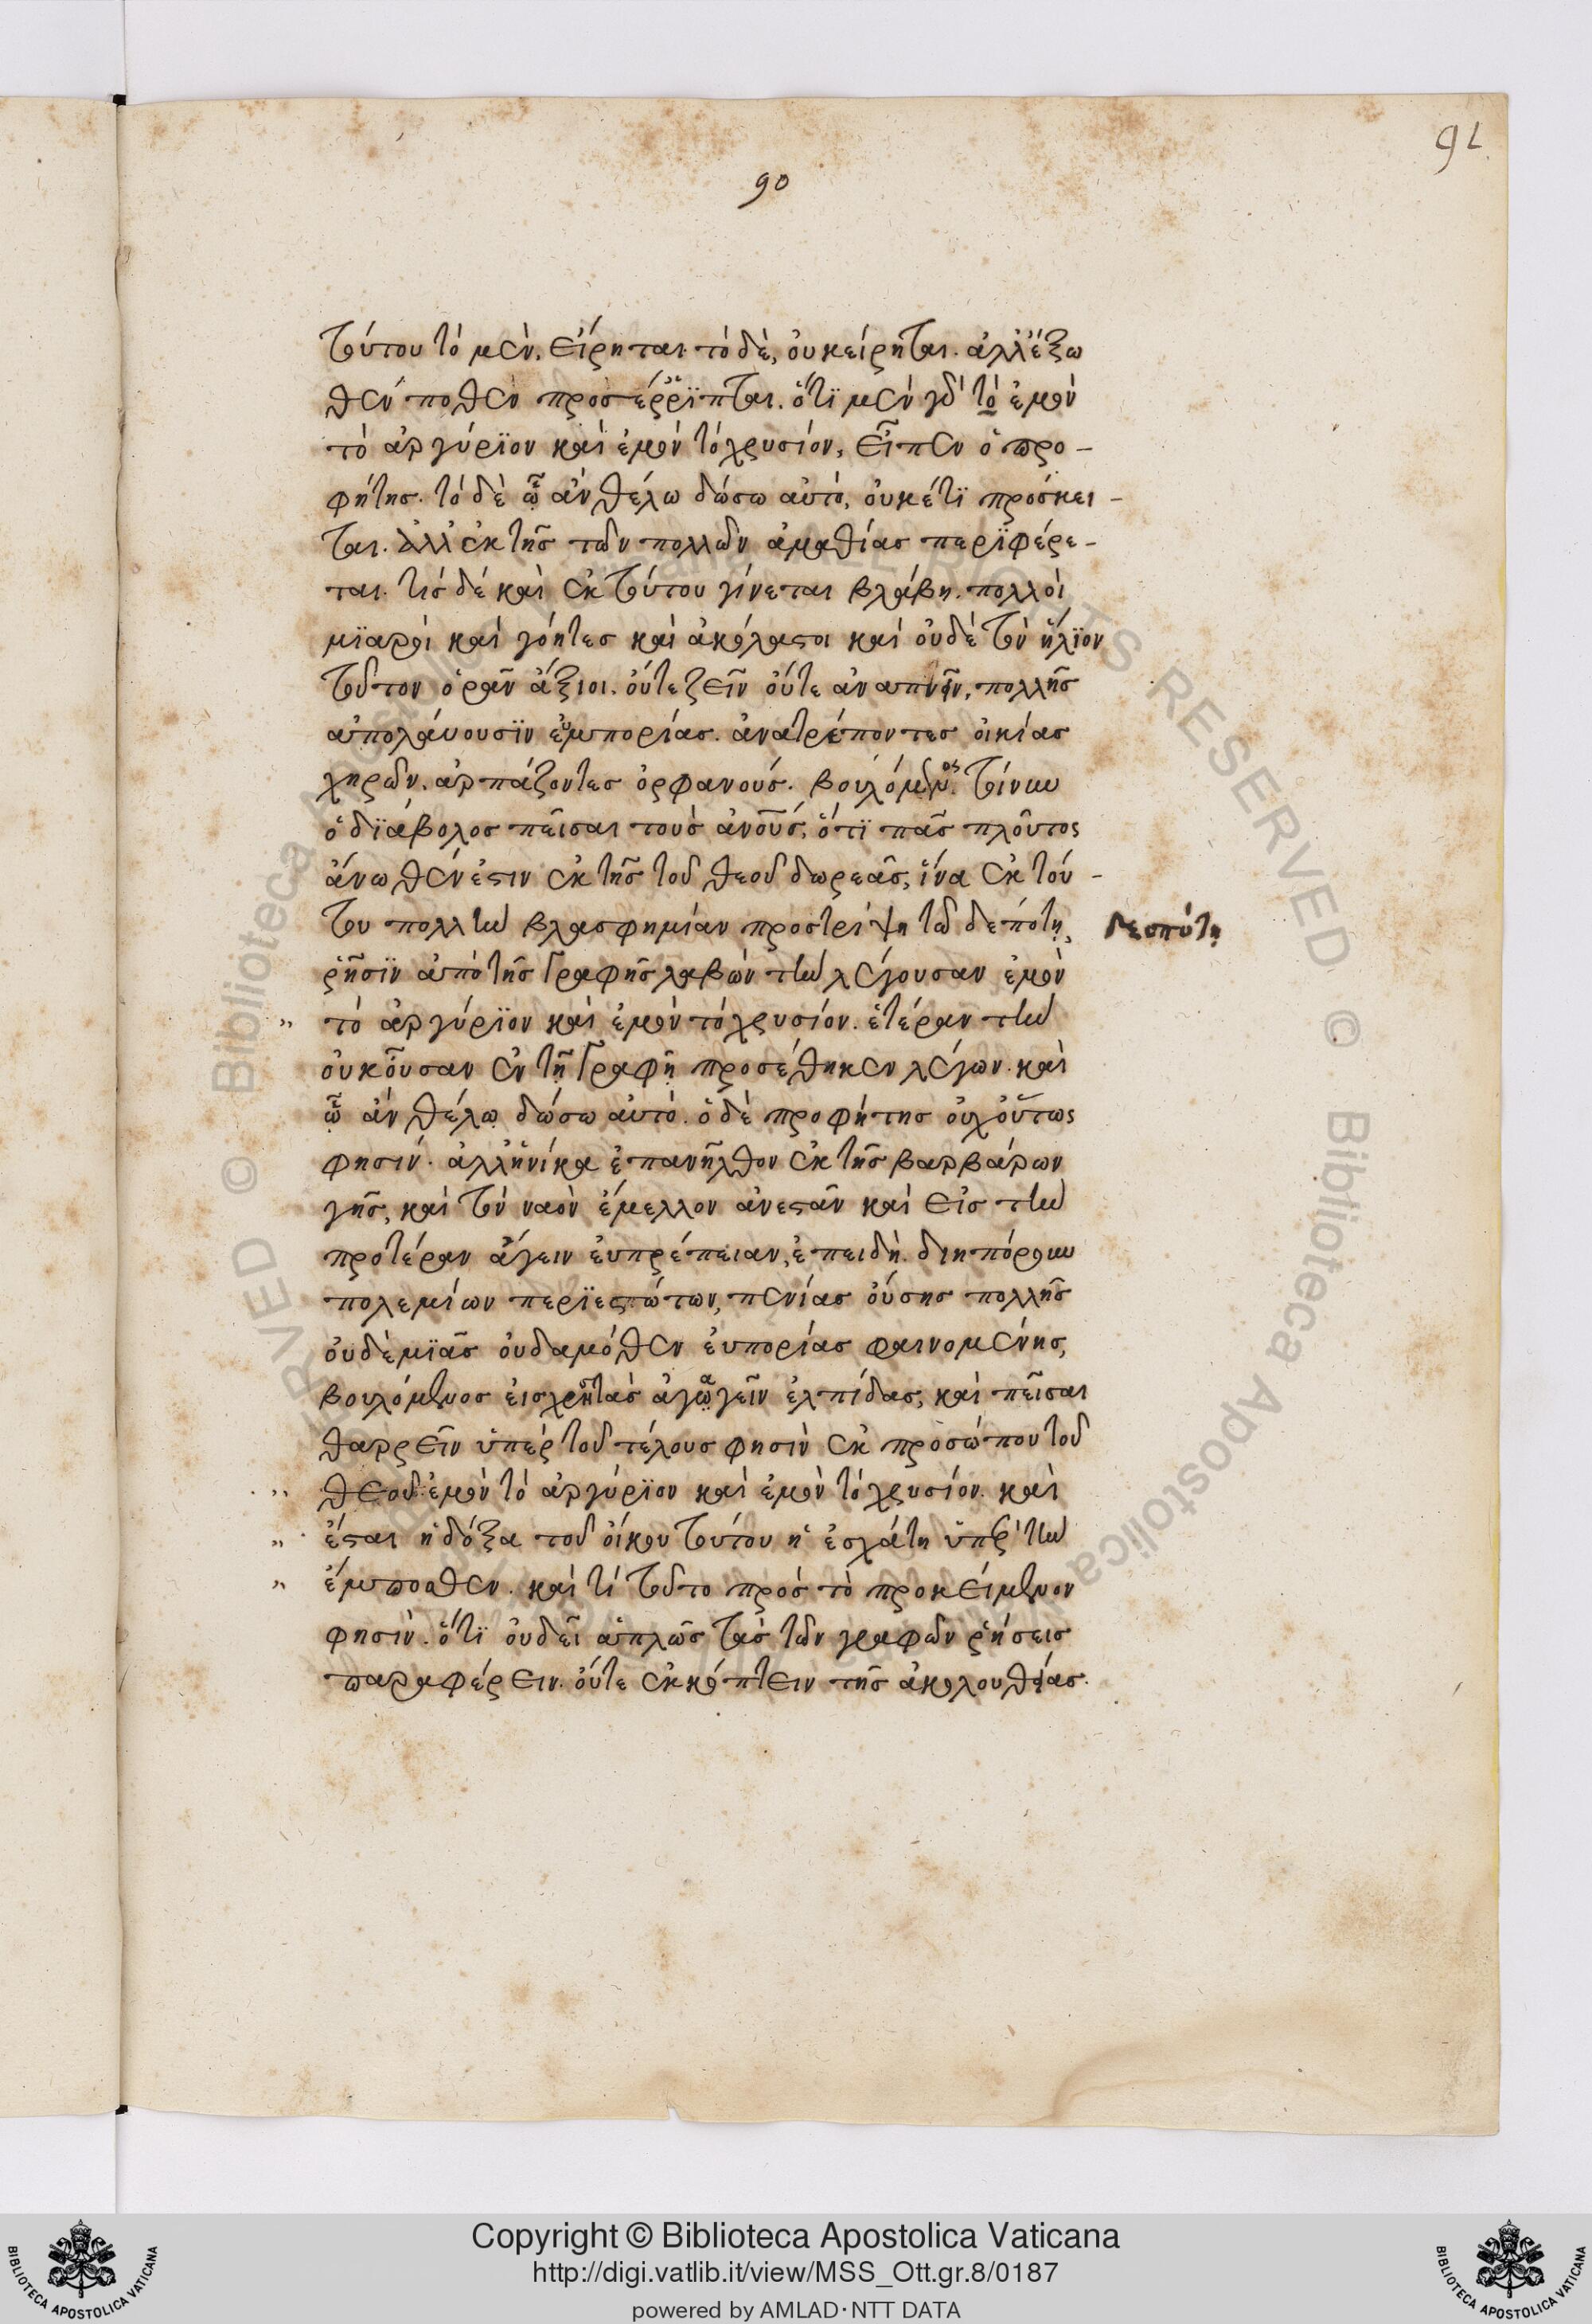 91
90
τούτου τὸ μὲν, εἴρηται. τὸ δὲ, οὐκείρηται. ἀλλ' ἔξω
θεν ποθὲν προσέρριπται. ὅτϊ μὲν γὰρ τὸ ἐμὸν
τὸ ἀργύρϊον καὶ ἐμὸν τὸ χρυσίον, εἶπεν ὁ προ-
φήτης. τὸ δὲ ᾧ ἀν θέλω δώσω αὐτὸ, οὐκέτϊ πρόσκει-
ται. ἀλλ' ἐκ τῆς τῶν πολλῶν ἀμαθίας περϊφέρε-
ται. τίς δέ καὶ ἐκ τούτου γίνεται βλάβη. πολλοὶ
μϊαροὶ καὶ γόητες καὶ ἀκόλαστοι καὶ οὐδὲ τὸν ἥλϊον
τοῦτον ὁρᾶν ἄξιοι. οὔτε ζεῖν οὔτε ἀναπνεῖν, πολλῆς
ἀπολάυουσϊν εὐμπορίας. ἀνατρέποντες οἰκίας
χηρῶν. ἁρπάζοντες ὀρφανούς. βουλόμενος τοίνυν
ὁ δϊάβολος πεῖσαι τοὺς ἀνοὺς, ὅτϊ πᾶς πλοῦτος
ἄνωθέν ἐστιν ἐκ τῆς τοῦ θεοῦ δωρεᾶς, ἵνα ἐκ τού-
του πολλὴν βλασφημίαν προστρίψη τῶ δεπότῃ,
δεσπότῃ
ῥῆσϊν ἀπὸ τῆς γραφῆς λαβὼν τὴν λέγουσαν ἐμὸν
" τὸ ἀργύρϊον καὶ ἐμὸν τὸ χρυσίον. ἑτέραν τὴν
οὐκ οὖσαν ἐν τῇ γραφῇ προσέθηκεν λέγων. καὶ
ᾧ ἀν θέλω δώσω αὐτό. ὁ δὲ προφήτης οὐχ οὕτως
φησίν. ἀλλ' ἡνίκα ἐπανῆλθον ἐκ τῆς βαρβάρων
γῆς, καὶ τὸν ναὸν ἔμελλον ἀνεστᾶν καὶ εἰς τὴν
προτέραν ἄγειν εὐπρέπειαν, ἐπειδὴ διηπόρουν
πολεμίων περϊεστώτων, πενίας οὔσης πολλῆς
οὐδὲ μϊᾶς οὐδαμόθεν εὐπορίας φαινομένης,
βουλόμενος εἰς χρηστὰς ἀγαγεῖν ἐλπίδας, καὶ πεῖσαι
θαρρεῖν ὑπὲρ τοῦ τέλους φησὶν ἐκ προσώπου τοῦ
" θεοῦ ἐμὸν τὸ ἀργύρϊον καὶ ἐμὸν τὸ χρυσίον. καὶ
" ἔσται ἡ δόξα τοῦ οἴκου τούτου ἡ ἐσχάτη ὑπὲρ τὴν
" ἔμπροσθεν. καὶ τί τοῦτο πρὸς τὸ προκείμενον
φησὶν. ὅτϊ οὐ δεῖ ἁπλῶς τὰς τῶν γραφῶν ῥήσεις
παραφέρειν. οὔτε ἐκκόπτειν τῆς ἀκολουθίας.
BIBLIOTECA APOSTOLICA VATICANA
Copyright © Biblioteca Apostolica Vaticana
http://digi.vatlib.it/view/MSS_Ott.gr.8/0187
powered by AMLAD·NTT DATA
BIBLIOTECA APOSTOLICA VATICANA